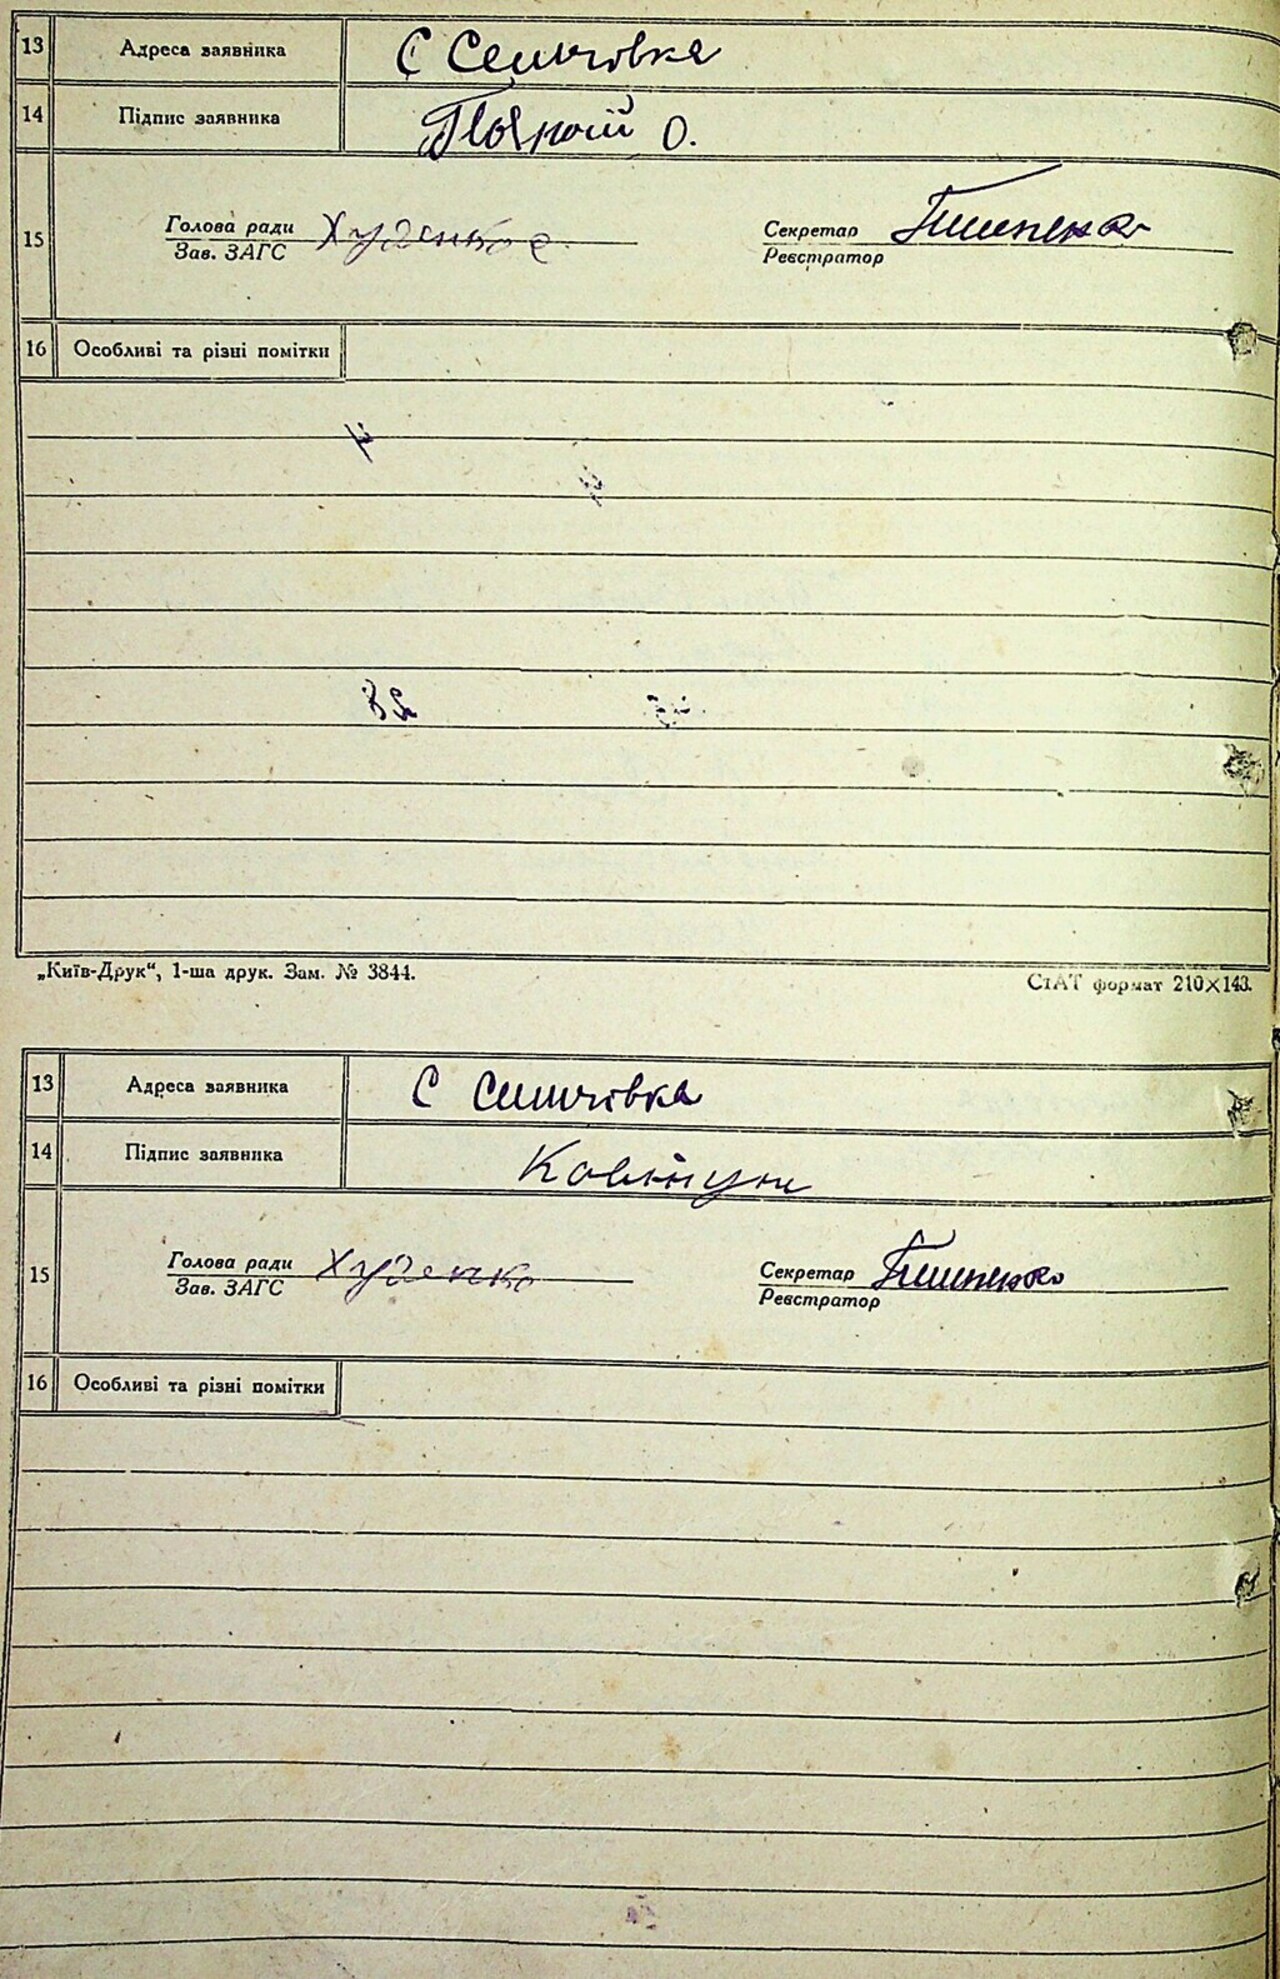 13 Адреса заявника С Сеньчівка
14 Підпис заявника О.
15 Голова ради Худенко Секретар Тимпенко
Зав. ЗАГС Реєстратор
16 Особливі та різні помітки
„Київ-Друк“, 1-ша друк. Зам. № 3844. СтАТ формат 210×143.
13 Адреса заявника С Сеньчівка
14 Підпис заявника
15 Голова ради Худенко Секретар Тимпенко
Зав. ЗАГС Реєстратор
16 Особливі та різні помітки